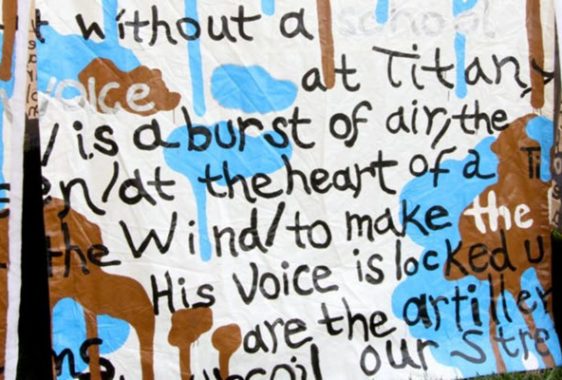 without a school
voice at Titan
is a burst of air, the
at the heart of a
the Wind/to make the
His Voice is locked
are the artiller
our Stre